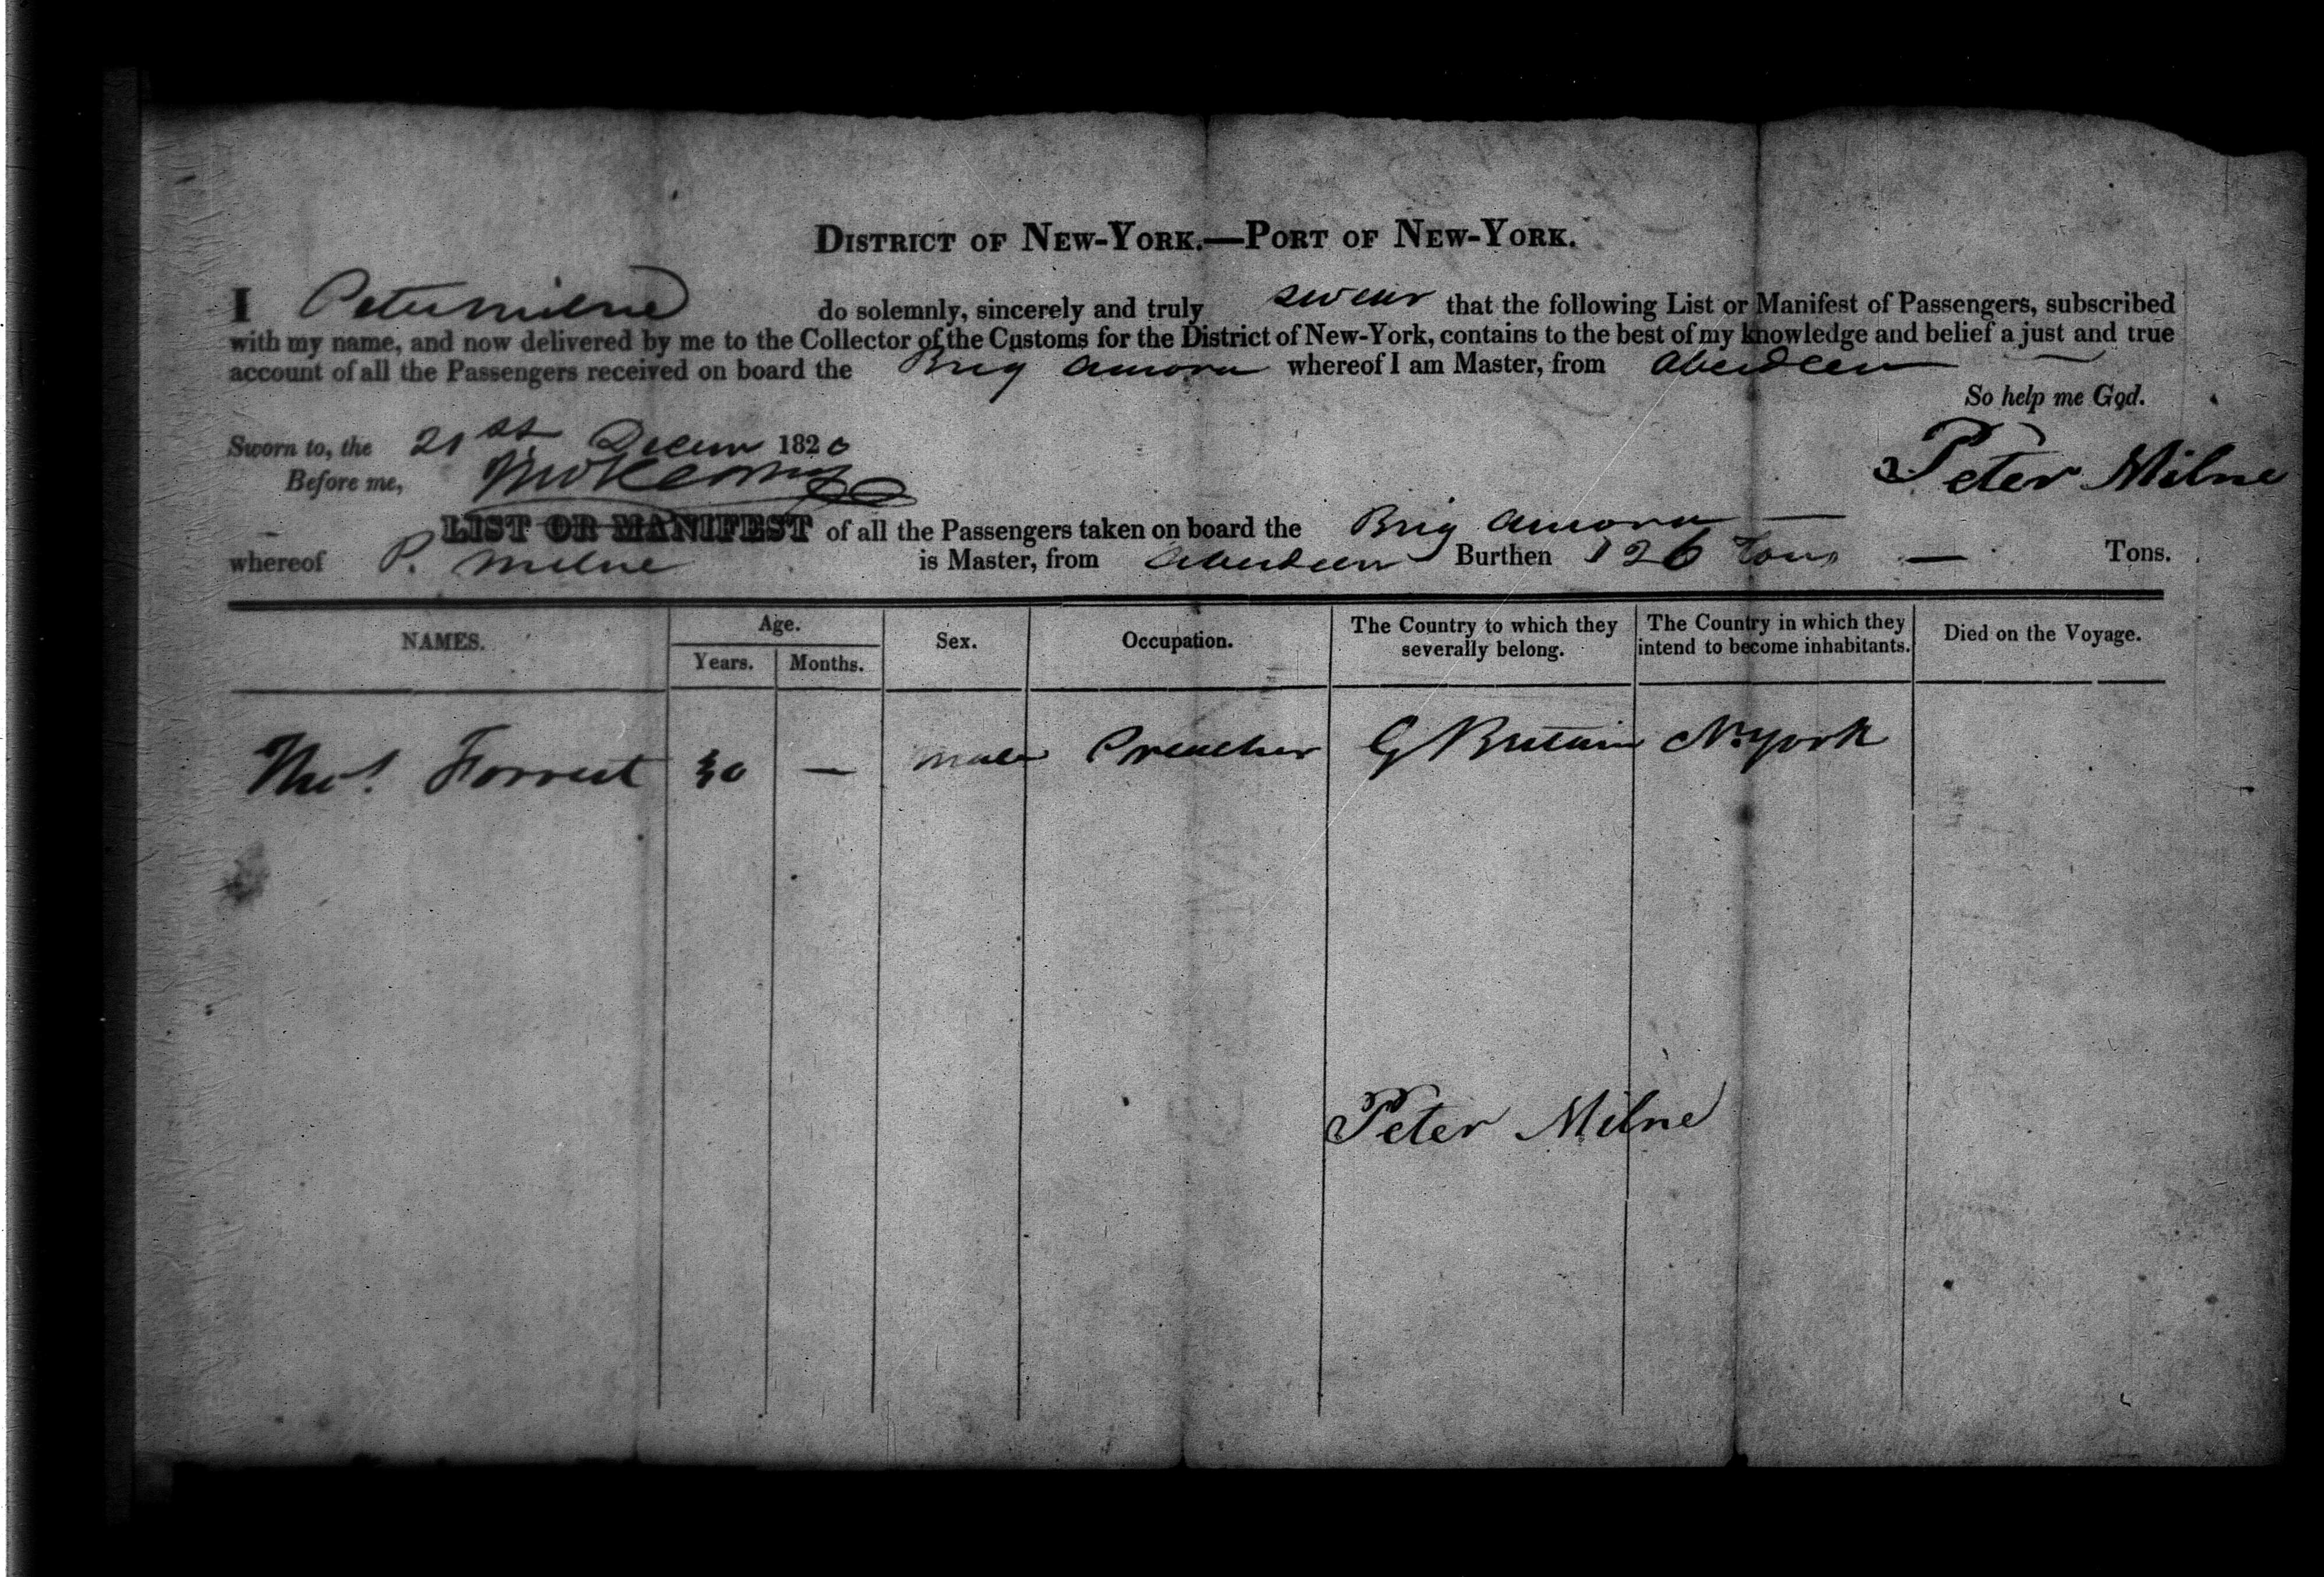 DISTRICT OF NEW-YORK.—PORT OF NEW-YORK.
I Peter Milne do solemnly, sincerely and truly swear that the following List or Manifest of Passengers, subscribed
with my name, and now delivered by me to the Collector of the Customs for the District of New-York, contains to the best of my knowledge and belief a just and true
account of all the Passengers received on board the Brig whereof I am Master, from Aberdeen
So help me God.
Sworn to, the 21st Decem 1820
Peter Milne
Before me,
LIST OR MANIFEST of all the Passengers taken on board the Brig
whereof P. Milne is Master, from Aberdeen Burthen 126 Tons — Tons.
NAMES. Age. Sex. Occupation. The Country to which they severally belong. The Country in which they intend to become inhabitants. Died on the Voyage.
Years. Months.
Thos. Forrest 30 — male Preacher G Britain N. York
Peter Milne